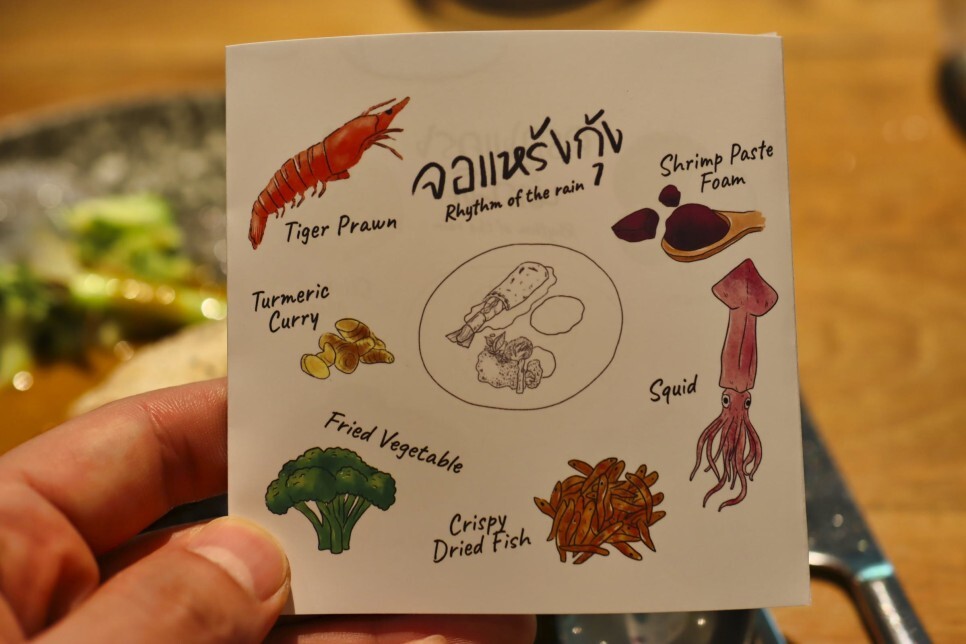 จอแหร้งกุ้ง
Rhythm of the rain
Tiger Prawn
Shrimp Paste
Foam
Turmeric
Curry
Squid
Fried Vegetable
Crispy
Dried Fish